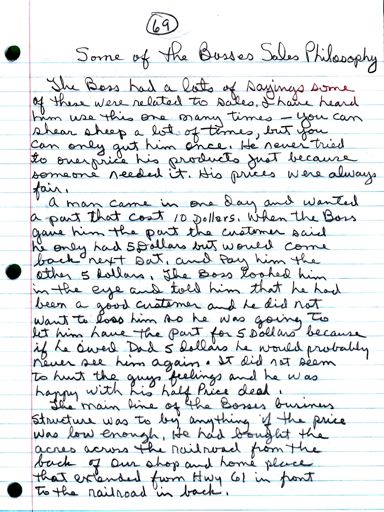 69
Some of the Bosses Sales Philosophy
The Boss had a lots of sayings some
of these were related to sales. I have heard
him use this one many times - you can
shear sheep a lot of times, but you
can only gut him once. He never tried
to overprice his products just because
someone needed it. His prices were always
fair.
A man came in one day and wanted
a part that cost 10 Dollars. When the Boss
gave him the part the customer said
he only had 5 Dollars but would come
back next Sat. and Pay him the
other 5 dollars. The Boss looked him
in the eye and told him that he had
been a good customer and he did not
want to loss him so he was going to
let him have the part for 5 Dollars because
if he owed Dad 5 dollars he would probably
never see him again. It did not seem
to hurt the guys feelings and he was
happy with his half Price deal
The main line of the Bosses business
structure was to by anything if the price
was low enough. He had bought the
acres across the railroad from the
back of our shop and home place
that extended from Hwy 61 in front
to the railroad in back.